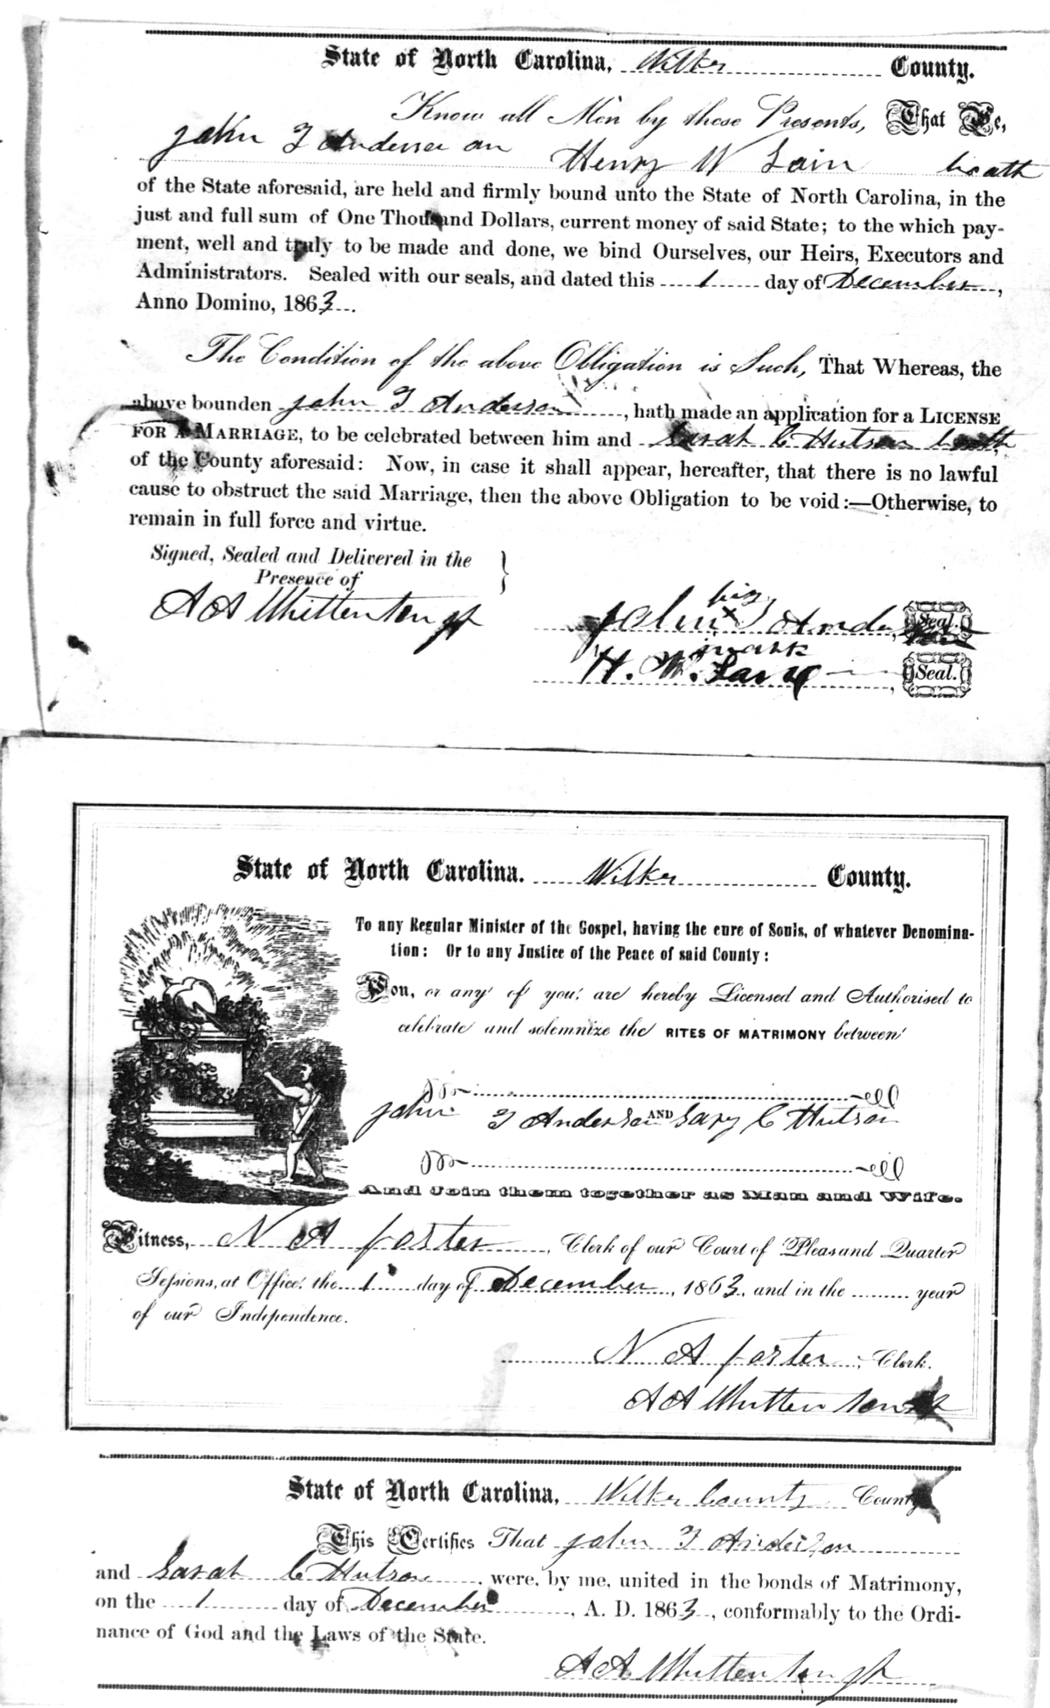 State of North Carolina, Wilkes County.
Know all Men by these Presents, That We,
John T Anderson an Henry W Lain boath
of the State aforesaid, are held and firmly bound unto the State of North Carolina, in the
just and full sum of One Thousand Dollars, current money of said State; to the which pay-
ment, well and truly to be made and done, we bind Ourselves, our Heirs, Executors and
Administrators. Sealed with our seals, and dated this 1 day of December,
Anno Domino, 1863.
The Condition of the above Obligation is Such, That Whereas, the
above bounden John T Anderson, hath made an application for a LICENSE
FOR A MARRIAGE, to be celebrated between him and Sarah C Hutson boath
of the County aforesaid: Now, in case it shall appear, hereafter, that there is no lawful
cause to obstruct the said Marriage, then the above Obligation to be void:—Otherwise, to
remain in full force and virtue.
Signed, Sealed and Delivered in the
Presence of
A A Whittenton JP
his
John X T Anderson Seal.
mark
H. W. Seal.
State of North Carolina. Wilkes County.
To any Regular Minister of the Gospel, having the cure of Souls, of whatever Denomina-
tion: Or to any Justice of the Peace of said County:
You, or any of you, are hereby Licensed and Authorised to
celebrate and solemnize the RITES OF MATRIMONY between
John T Anderson AND Sary C Hutson
And Join them together as Man and Wife.
Witness, N A Foster, Clerk of our Court of Pleas and Quarter
Sessions, at Office, the 1 day of December, 1863, and in the year
of our Independence.
N A Foster, Clerk.
A A Whittenton
State of North Carolina, Wilkes County County
This Certifies That John T Anderson
and Sarah C Hutson, were, by me, united in the bonds of Matrimony,
on the 1 day of December, A. D. 1863, conformably to the Ordi-
nance of God and the Laws of the State.
A A Whittenton JP